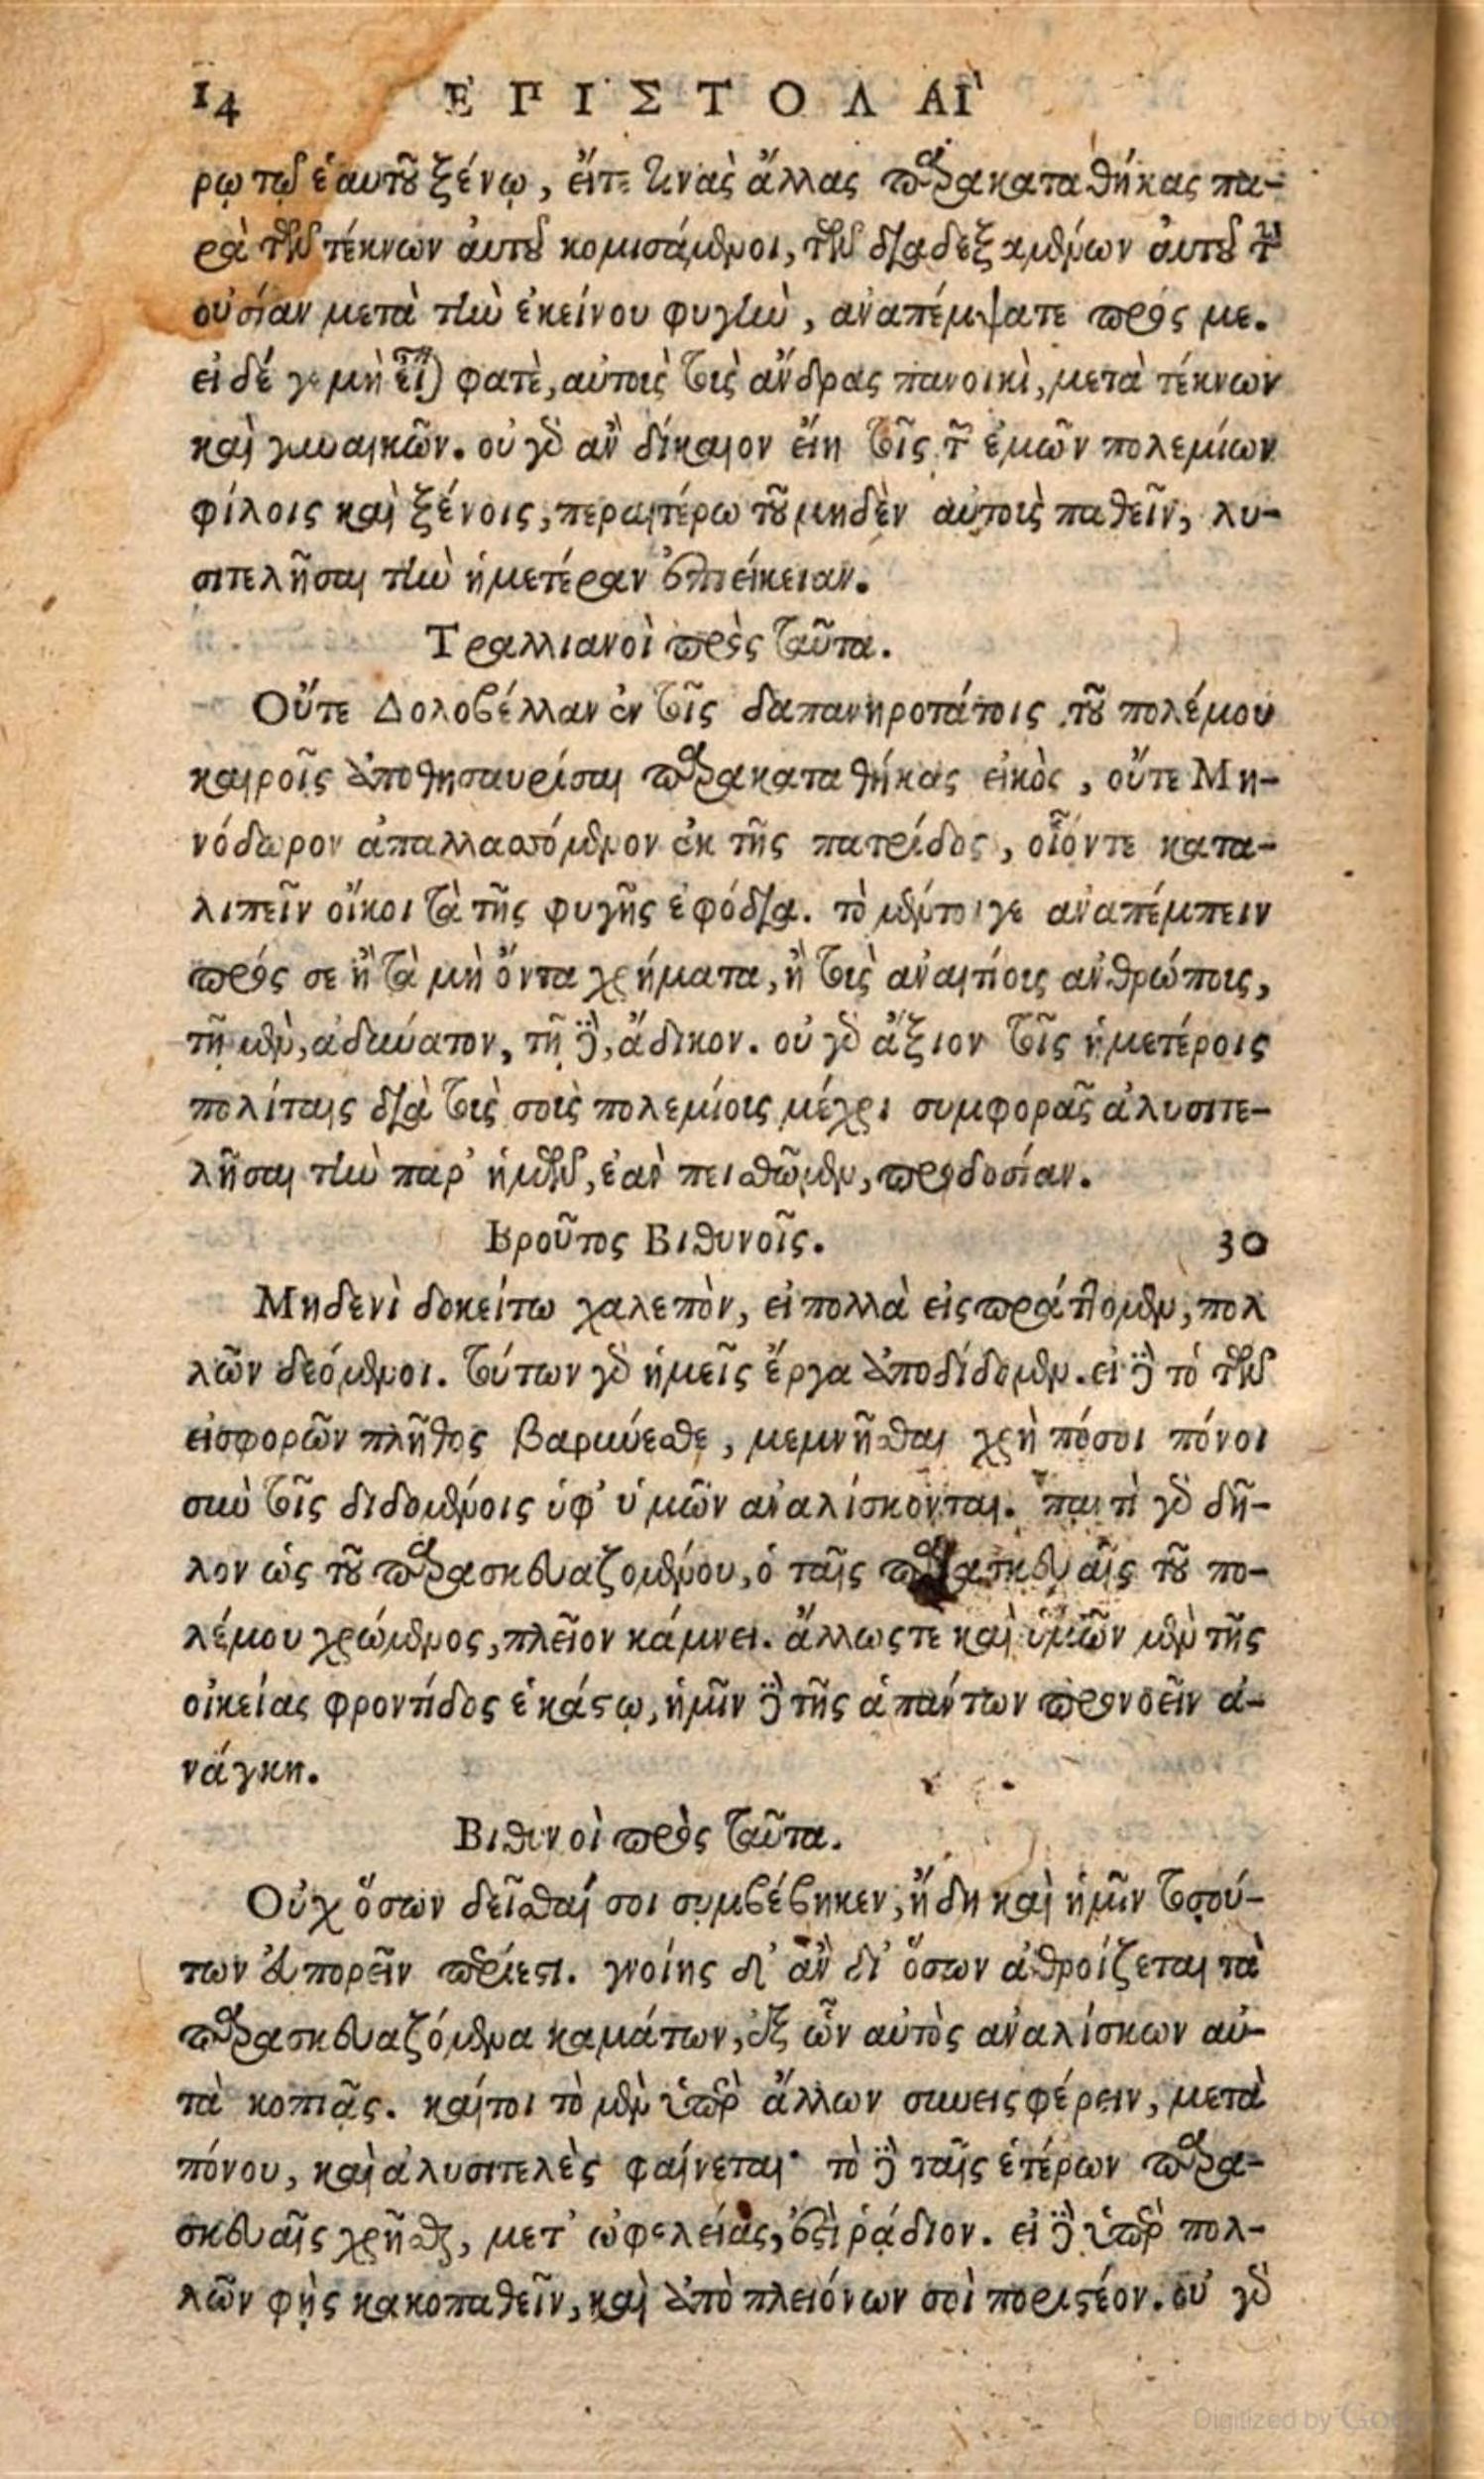 14 ἘΠΙΣΤΟΛΑῚ
ρῳ τῷ ἑαυτοῦ ξένῳ, εἴτε τινὰς ἄλλας παρακαταθήκας πα-
ρὰ τῶν τέκνων αὐτοῦ κομισάμενοι, τῶν διαδεξαμένων αὐτοῦ τὴν
οὐσίαν μετὰ τὴν ἐκείνου φυγὴν, ἀναπέμψατε πρός με.
εἰ δέ γε μὴ φατὲ, αὐτοὺς τοὺς ἄνδρας πανοικὶ, μετὰ τέκνων
καὶ γυναικῶν. οὐ γὰρ ἂν δίκαιον εἴη τοῖς τῶν ἐμῶν πολεμίων
φίλοις καὶ ξένοις, περαιτέρω τοῦ μηδὲν αὐτοὺς παθεῖν, λυ-
σιτελῆσαι τὴν ἡμετέραν ἐπιείκειαν.
Τραλλιανοὶ πρὸς ταῦτα.
Οὔτε Δολοβέλλαν ἐν τοῖς δαπανηροτάτοις τοῦ πολέμου
καιροῖς ἀποθησαυρίσαι παρακαταθήκας εἰκὸς, οὔτε Μη-
νόδωρον ἀπαλλασσόμενον ἐκ τῆς πατρίδος, οἷόντε κατα-
λιπεῖν οἴκοι τὰ τῆς φυγῆς ἐφόδια. τὸ μέντοιγε ἀναπέμπειν
πρός σε ἢ τὰ μὴ ὄντα χρήματα, ἢ τοὺς ἀναιτίους ἀνθρώπους,
τῇ μὲν, ἀδύνατον, τῇ δὲ, ἄδικον. οὐ γὰρ ἄξιον τοῖς ἡμετέροις
πολίταις διὰ τοὺς σοὺς πολεμίους μέχρι συμφορᾶς ἀλυσιτε-
λῆσαι τὴν παρ' ἡμῶν, ἐὰν πεισθῶμεν, προδοσίαν.
Βροῦτος Βιθυνοῖς. 30
Μηδενὶ δοκείτω χαλεπὸν, εἰ πολλὰ εἰσπράττομεν, πολ
λῶν δεόμενοι. τούτων γὰρ ἡμεῖς ἔργα ἀποδίδομεν. εἰ δὲ τὸ τῶν
εἰσφορῶν πλῆθος βαρύνεσθε, μεμνῆσθαι χρὴ πόσοι πόνοι
σὺν τοῖς διδομένοις ὑφ' ὑμῶν ἀναλίσκονται. παντὶ γὰρ δῆ-
λον ὡς τοῦ παρασκευαζομένου, ὁ ταῖς παρασκευαῖς τοῦ πο-
λέμου χρώμενος, πλεῖον κάμνει. ἄλλως τε καὶ ὑμῶν μὲν τῆς
οἰκείας φροντίδος ἑκάστῳ, ἡμῖν δὲ τῆς ἁπάντων προνοεῖν ἀ-
νάγκη.
Βιθινοὶ πρὸς ταῦτα.
Οὐχ ὅσων δεῖσθαί σοι συμβέβηκεν, ἤδη καὶ ἡμῖν τοσού-
των εὐπορεῖν πρίεστι. γνοίης δ' ἂν δι' ὅσων ἀθροίζεται τὰ
παρασκευαζόμενα καμάτων, ἐξ ὧν αὐτὸς ἀναλίσκων αὐ-
τὰ κοπιᾷς. καίτοι τὸ μὲν ὑπὲρ ἄλλων συνεισφέρειν, μετὰ
πόνου, καὶ ἀλυσιτελὲς φαίνεται· τὸ δὲ ταῖς ἑτέρων παρα-
σκευαῖς χρῆσθαι, μετ' ὠφελείας, ἐστὶ ῥᾴδιον. εἰ δὲ ὑπὲρ πολ-
λῶν φῂς κακοπαθεῖν, καὶ ἀπὸ πλειόνων σοὶ ποριστέον. οὐ γὰρ